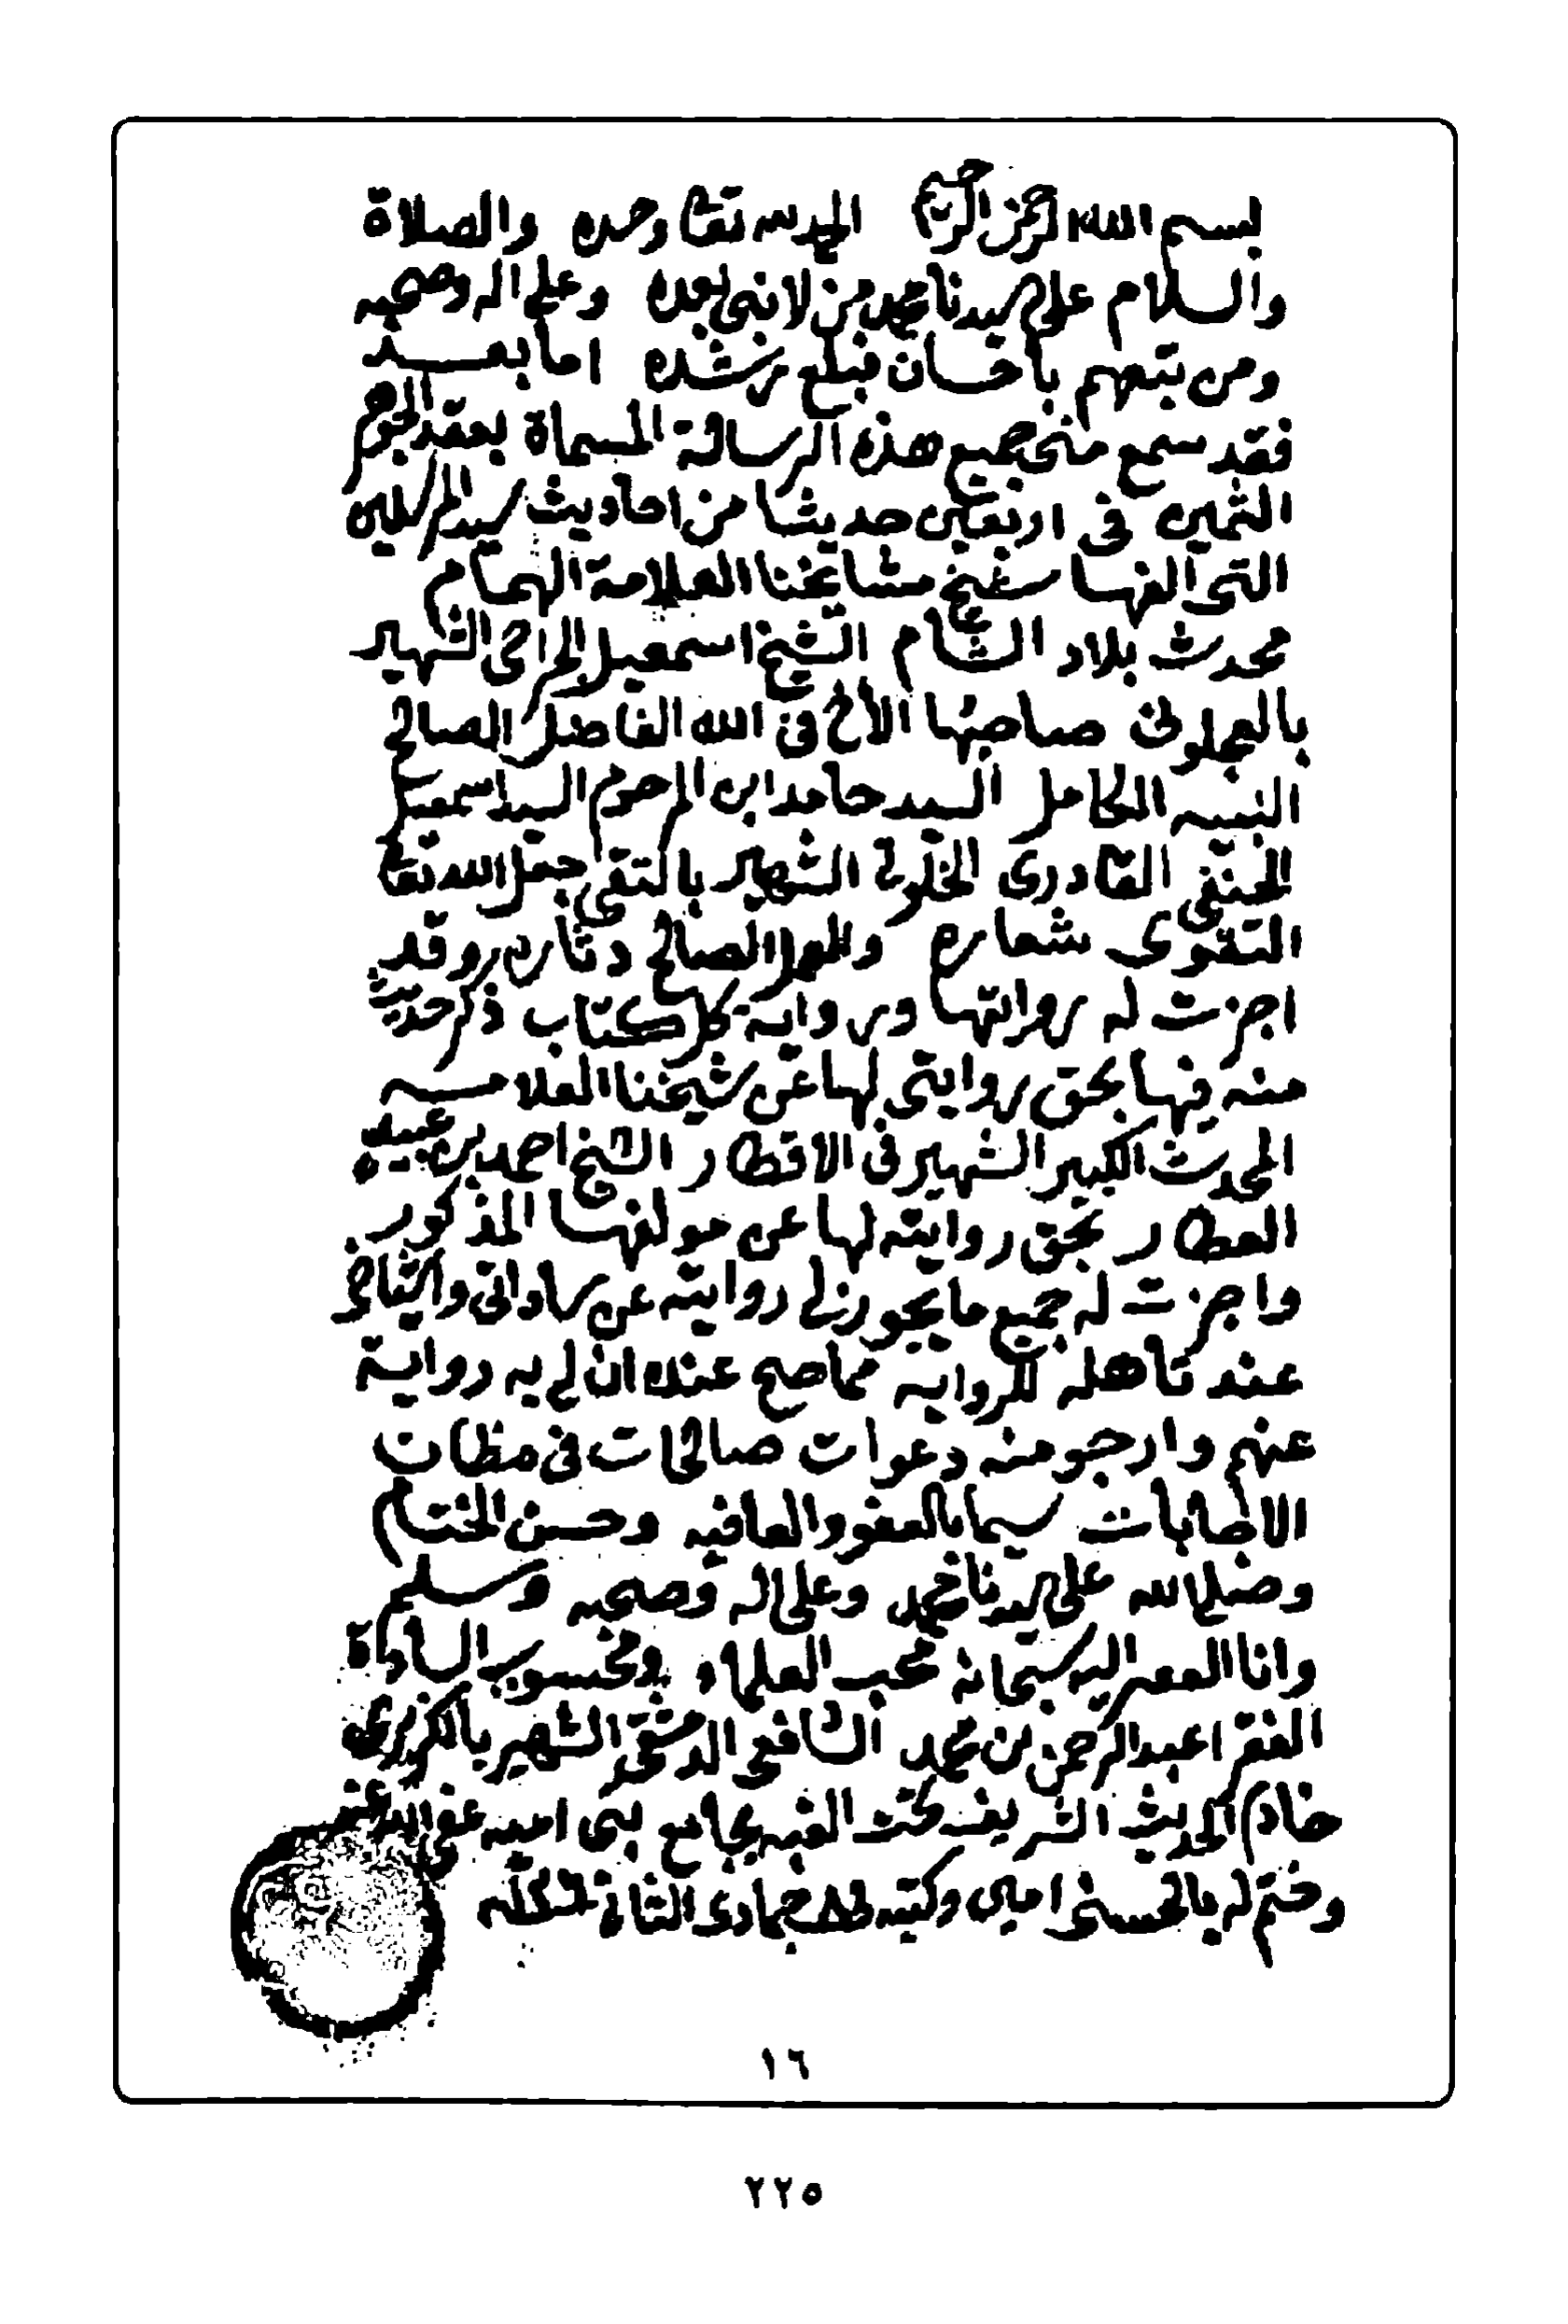 بسم الله الرحمن الرحيم الحمد لله تعا وحده والصلاة
والسلام على سيدنا محمد من لا نبي بعده وعلى اله وصحبه
ومن تبعهم باحسان فبلغ رشده اما بعد
فقد سمع مني جميع هذه الرسالة المسماة بعقد الجوهر
الثمين في اربعين حديثا من احاديث سيد المرسلين
التي الفها شيخ مشايخنا العلامة الهمام
محدث بلاد الشام الشيخ اسمعيل الجراحي الشهير
بالعجلوني صاحبها الأخ في الله الفاضل الصالح
النبيه الكامل السيد حامد ابن المرحوم السيد اسمعيل
الحنفي القادري الخلوتي الشهير بالتقي جعل الله تعا
التقوى شعاره والعمل الصالح دثاره وقد
اجزت له روايتها ورواية كل كتاب ذكر حديث
منه فيها بحق روايتي لها عن شيخنا العلامه
المحدث الكبير الشهير في الاقطار الشيخ احمد بن عبيد
العطار بحق روايته لها عن مولفها المذكور
واجزت له جميع ما يجوز لي روايته عن ساداتي واشياخي
عند تأهله للرواية مما صح عنده ان لي به رواية
عنهم وارجو منه دعوات صالحات في مظان
الاجابات سيما بالعفو والعافيه وحسن الختام
وصلى الله على سيدنا محمد وعلى اله وصحبه وسلم
وانا اليه سبحانه محب العلماء ومحسوب السادة
الفقر عبد الرحمن بن محمد الشافعي الدمشقي الشهير بالكزبري
خادم الحديث الشريف تحت القبه بجامع بني اميه عفى الله عنه
وختم له بالحسنى امين وكتبه جمادى الثانية
١٦
٢٢٥